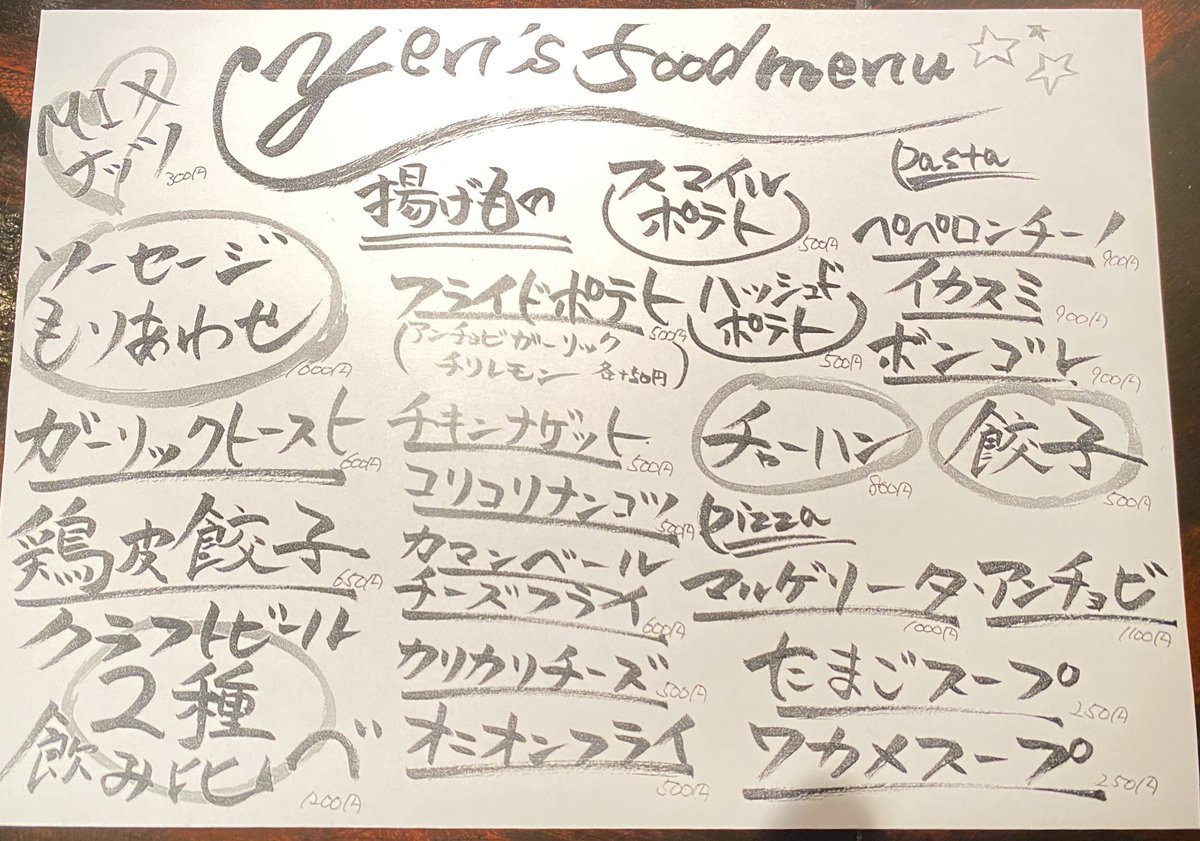 Yen's food menu
MIX
ナッツ
300円
ソーセージ
もりあわせ
1000円
ガーリックトースト
600円
鶏皮餃子
650円
クラフトビール
2種
飲み比べ
1200円
揚げもの
スマイル
ポテト
500円
フライドポテト
500円
(アンチョビガーリック
チリレモン 各+50円)
ハッシュド
ポテト
500円
チキンナゲット
500円
コリコリナンコツ
500円
カマンベール
チーズフライ
600円
カリカリチーズ
500円
オニオンフライ
500円
pasta
ペペロンチーノ
900円
イカスミ
900円
ボンゴレ
900円
チャーハン
800円
餃子
500円
pizza
マルゲリータ・アンチョビ
1000円
1100円
たまごスープ
250円
ワカメスープ
250円